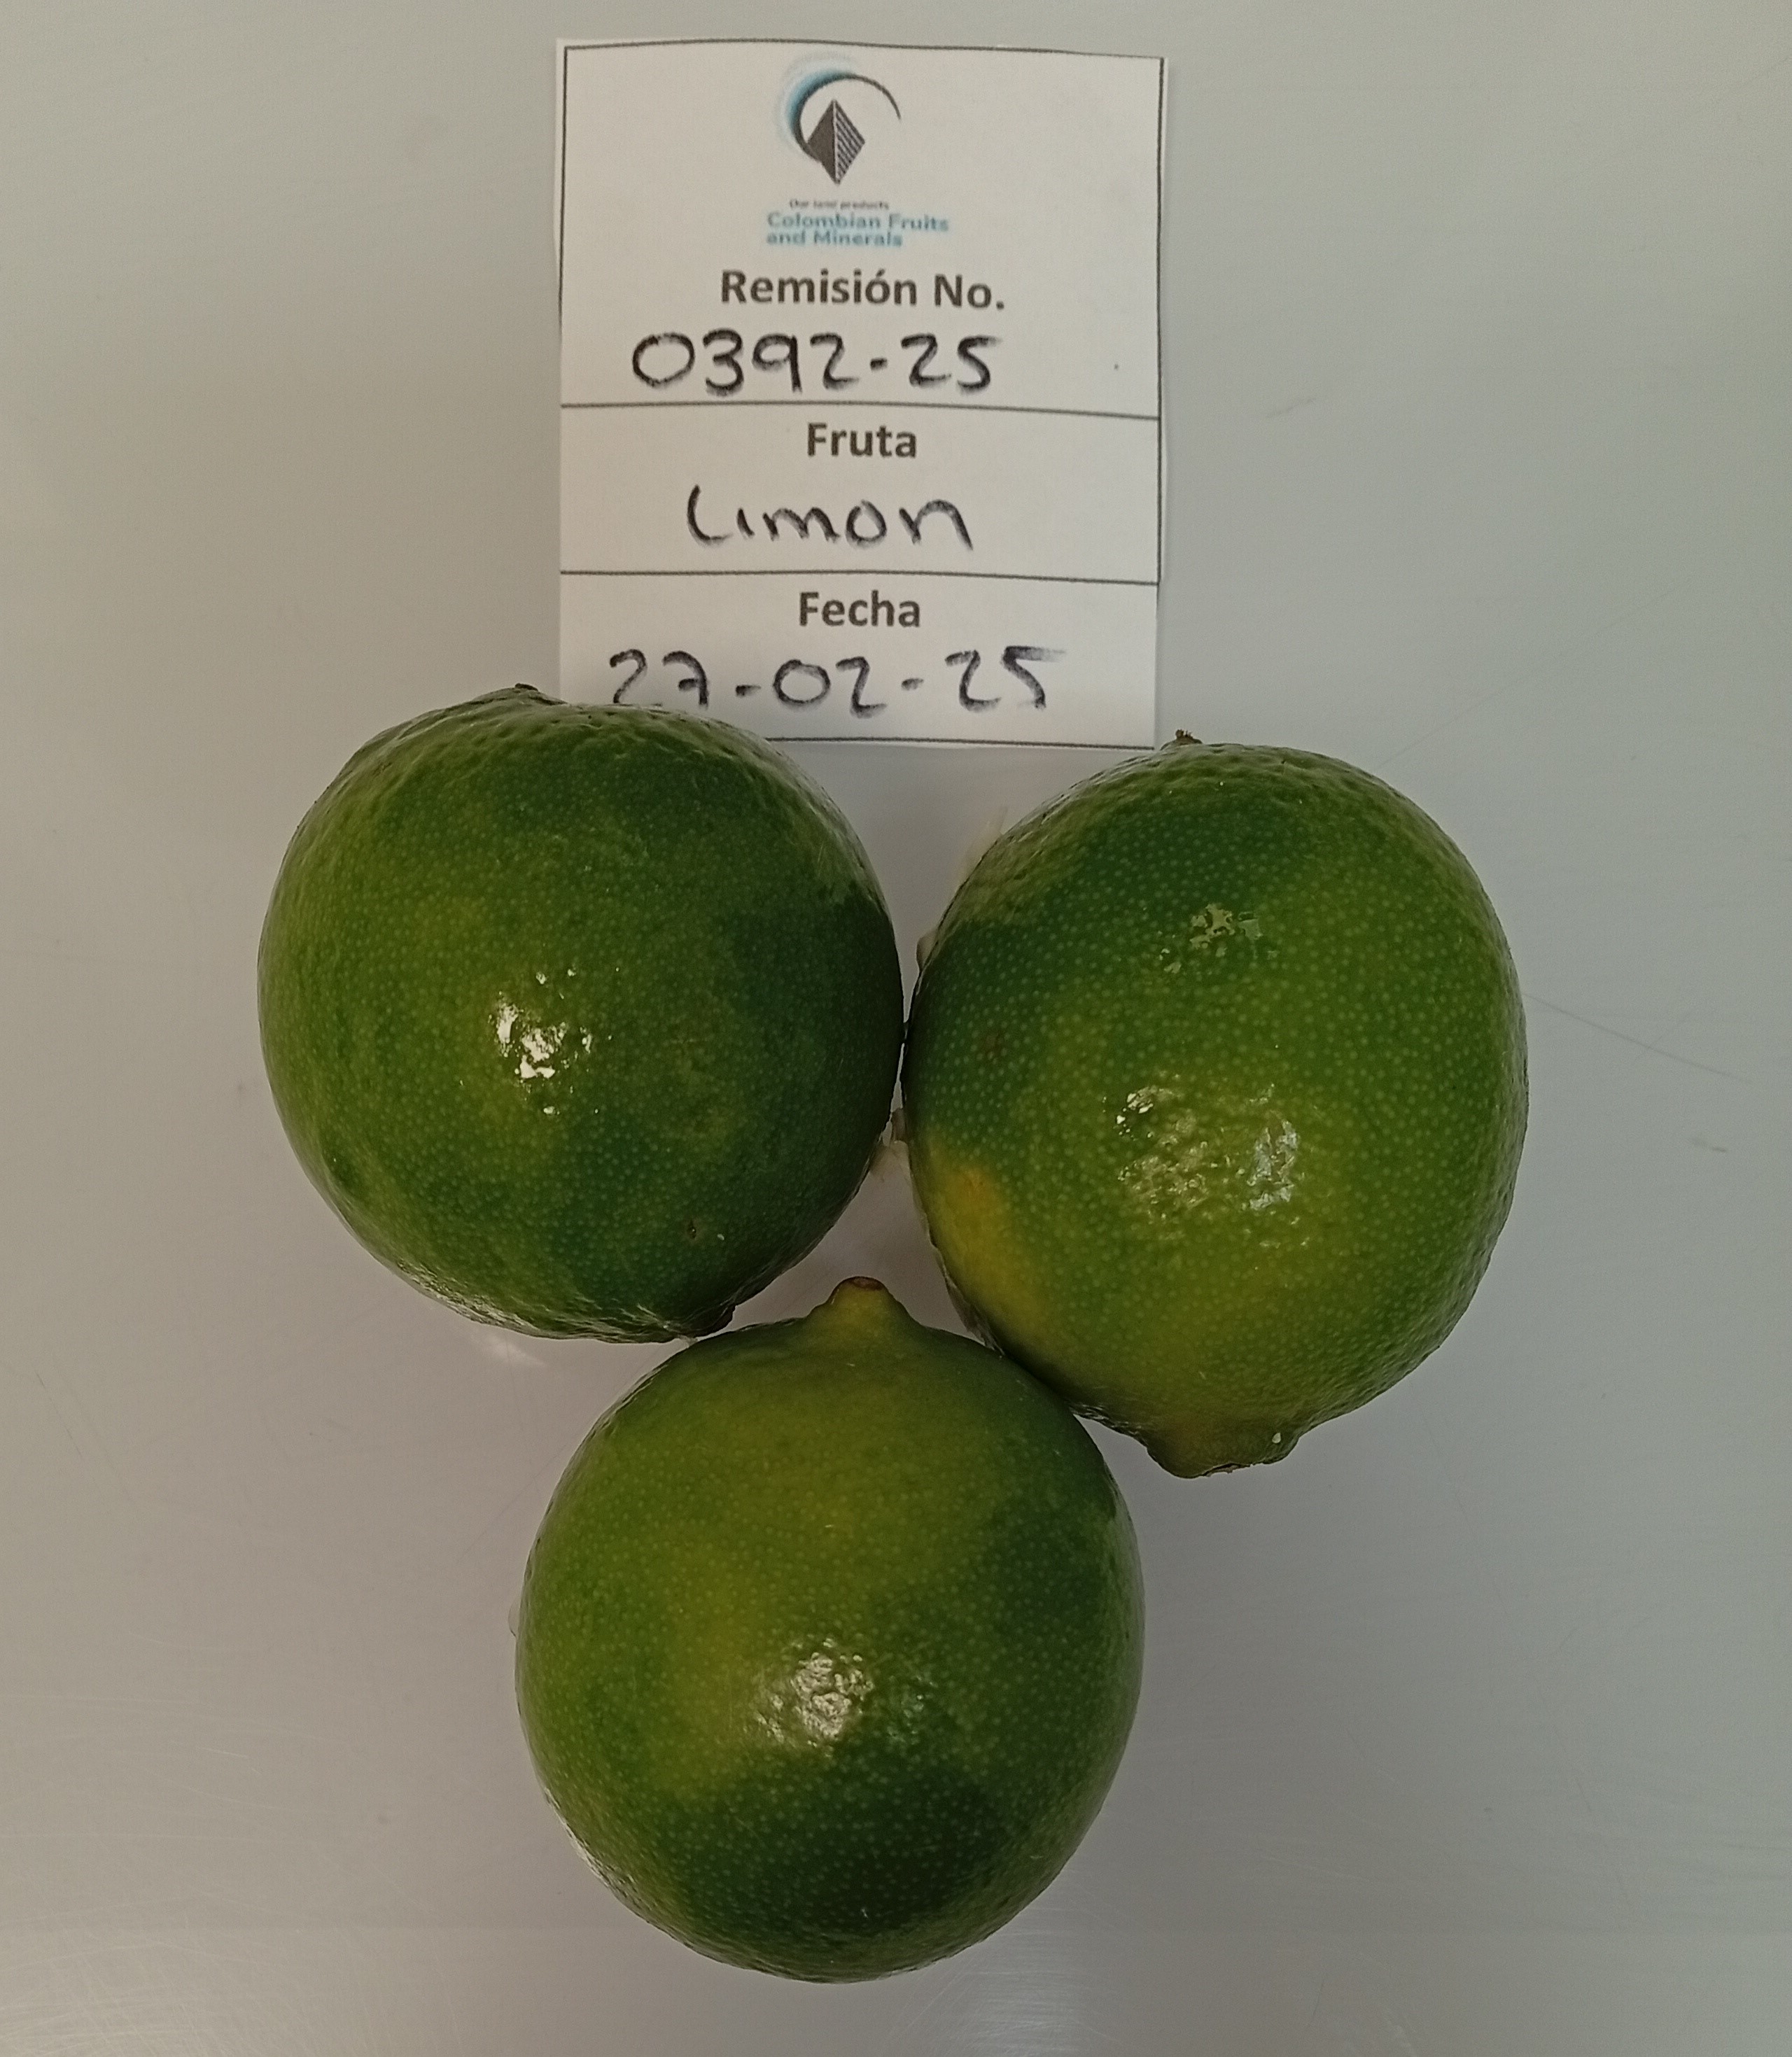 Our land products
Colombian Fruits
and Minerals
Remisión No.
0392-25
Fruta
Limon
Fecha
27-02-25